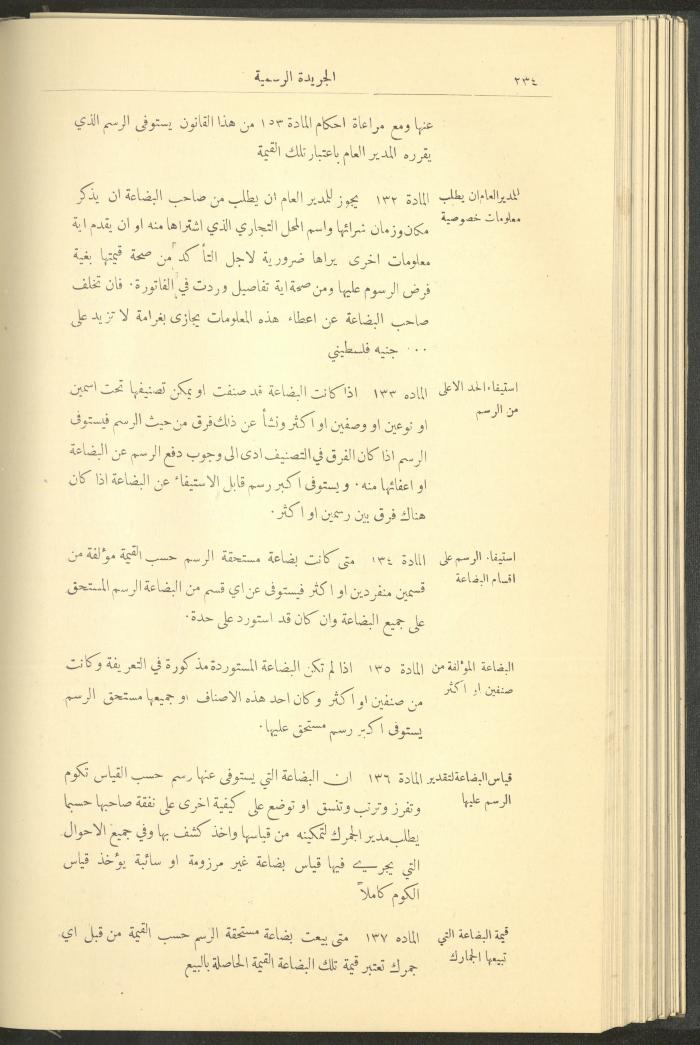 ٢٣٤
الجريدة الرسمية
عنها ومع مراعاة احكام المادة ١٥٣ من هذا القانون يستوفى الرسم الذي
يقرره المدير العام باعتبار تلك القيمة
للمدير العام ان يطلب
معلومات خصوصية
المادة ١٣٢ يجوز للمدير العام ان يطلب من صاحب البضاعة ان يذكر
مكان وزمان شرائها واسم المحل التجاري الذي اشتراها منه او ان يقدم اية
معلومات اخرى يراها ضرورية لاجل التأكد من صحة قيمتها بغية
فرض الرسوم عليها ومن صحة اية تفاصيل وردت في الفاتورة. فان تخلف
صاحب البضاعة عن اعطاء هذه المعلومات يجازى بغرامة لا تزيد على
جنيه فلسطيني
استيفاء الحد الاعلى
من الرسم
الماده ١٣٣ اذا كانت البضاعة قد صنفت او يمكن تصنيفها تحت اسمين
او نوعين او وصفين او اكثر ونشأ عن ذلك فرق من حيث الرسم فيستوفى
الرسم اذا كان الفرق في التصنيف ادى الى وجوب دفع الرسم عن البضاعة
او اعفائها منه. ويستوفى اكبر رسم قابل الاستيفاء عن البضاعة اذا كان
هناك فرق بين رسمين او اكثر.
استيفاء الرسم على
اقسام البضاعة
المادة ١٣٤ متى كانت بضاعة مستحقة الرسم حسب القيمة مؤلفة من
قسمين منفردين او اكثر فيستوفى عن اي قسم من البضاعة الرسم المستحق
على جميع البضاعة وان كان قد استورد على حدة.
البضاعة المؤلفة من
صنفين او اكثر
المادة ١٣٥ اذا لم تكن البضاعة المستوردة مذكورة في التعريفة وكانت
من صنفين او اكثر وكان احد هذه الاصناف او جميعها مستحق الرسم
يستوفى اكبر رسم مستحق عليها.
قياس البضاعة لتقدير
الرسم عليها
المادة ١٣٦ ان البضاعة التي يستوفى عنها رسم حسب القياس تكوم
وتفرز وترتب وتنسق او توضع على كيفية اخرى على نفقة صاحبها حسبما
يطلب مدير الجمرك لتمكينه من قياسها واخذ كشف بها وفي جميع الاحوال
التي يجري فيها قياس بضاعة غير مرزومة او سائبة يؤخذ قياس
الكوم كاملاً
قيمة البضاعة التي
تبيعها الجمارك
الماده ١٣٧ متى بيعت بضاعة مستحقة الرسم حسب القيمة من قبل اي
جمرك تعتبر قيمة تلك البضاعة القيمة الحاصلة بالبيع